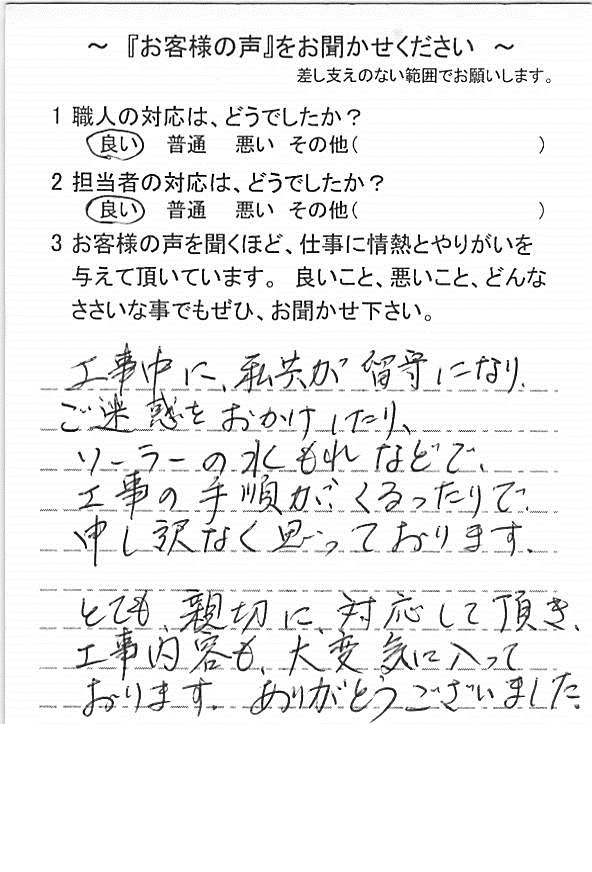 ～ 『お客様の声』をお聞かせください ～
差し支えのない範囲でお願いします。
1 職人の対応は、どうでしたか？
良い 普通 悪い その他( )
2 担当者の対応は、どうでしたか？
良い 普通 悪い その他( )
3 お客様の声を聞くほど、仕事に情熱とやりがいを
与えて頂いています。 良いこと、悪いこと、どんな
ささいな事でもぜひ、お聞かせ下さい。
工事中に、私共が留守になり、
ご迷惑をおかけしたり、
ソーラーの水もれなどで、
工事の手順がくるったりで
申し訳なく思っております。
とても、親切に、対応して頂き、
工事内容も、大変気に入って
おります。ありがとうございました。